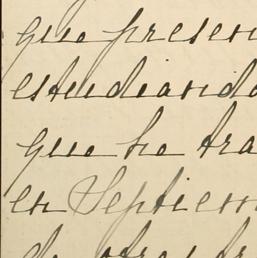 que presen
estudiando
que he tra
en Septiem
de otros tr